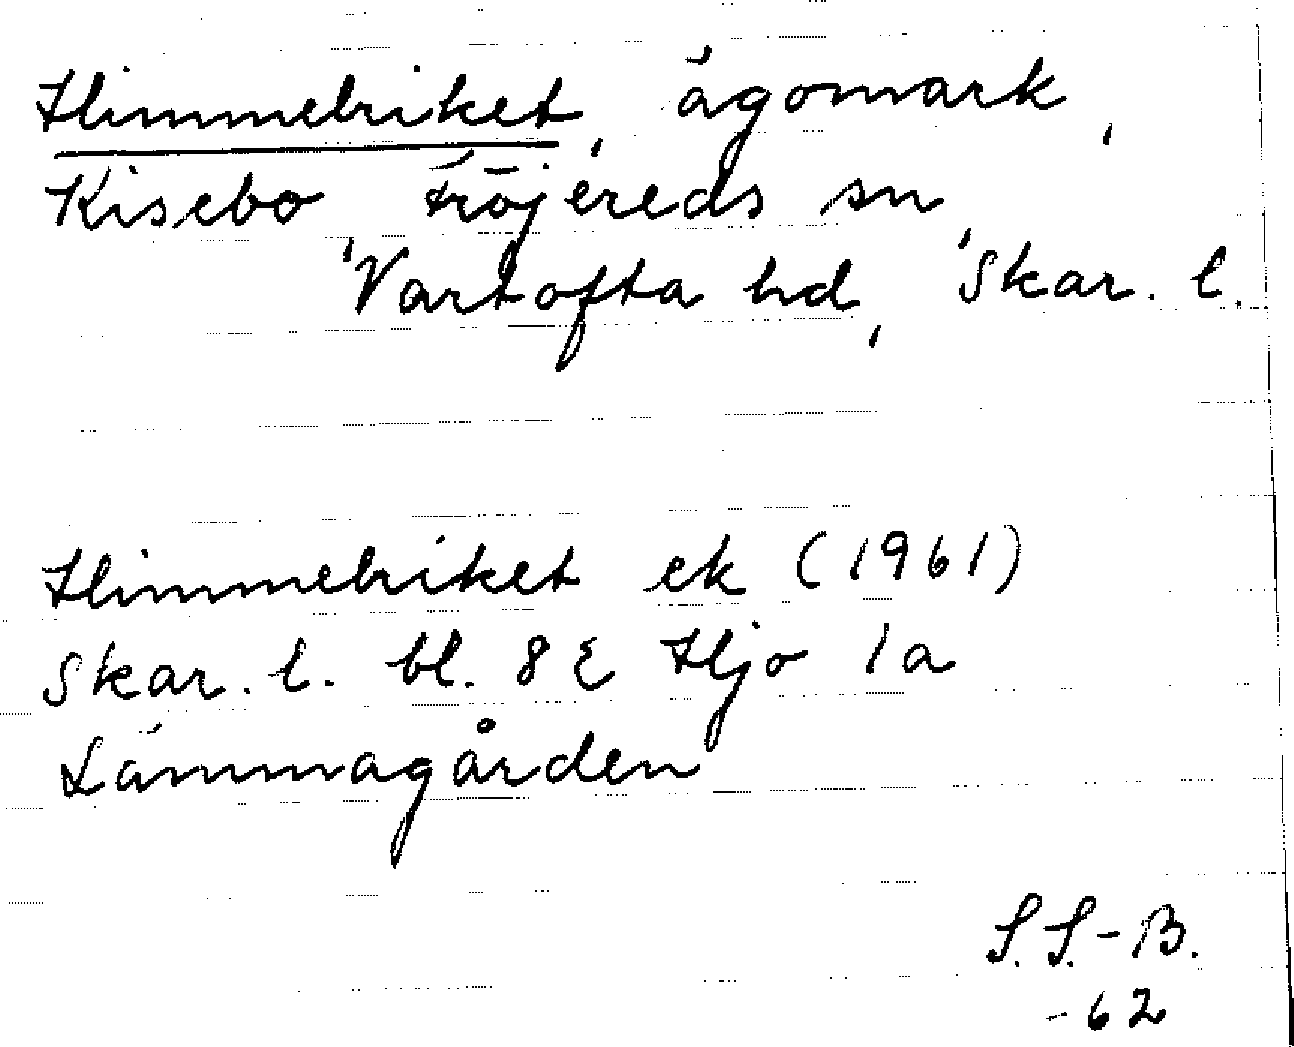 Himmelriket, ägomark,
Kisebo, Fröjereds sn,
Vartofta hd, Skar. l.
Himmelriket ek (1961)
Skar. l. bl. 8 E Hjo 1a
Lämmagården
S. S.-B.
-62